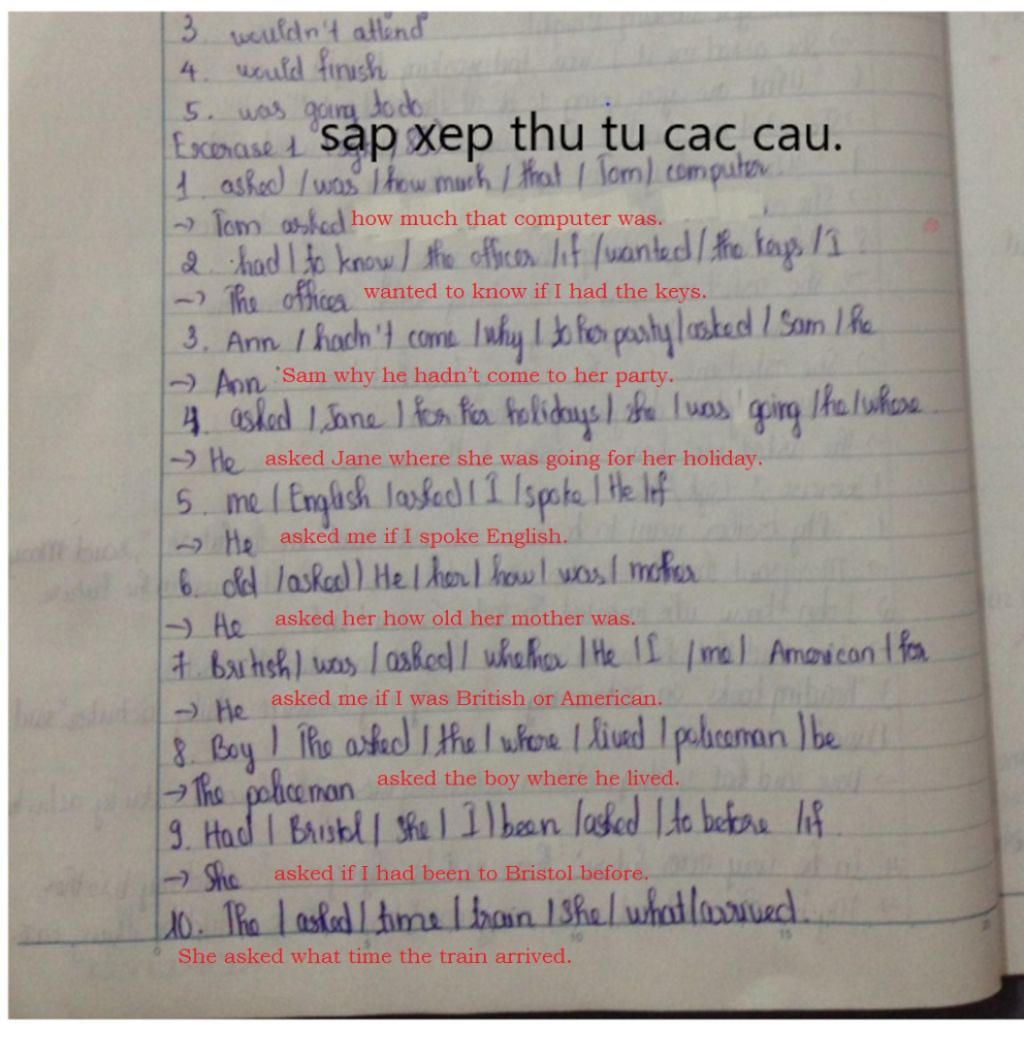 3. wouldn't attend
4. would finish
5. was going to do
Excerase 1
sap xep thu tu cac cau.
1. asked / was / how much / that / Tom / computer.
→ Tom asked how much that computer was.
2. had / to know / the officer / if / wanted / the keys / I
→ The officer wanted to know if I had the keys.
3. Ann / hadn't come / why / to her party / asked / Sam / he
→ Ann Sam why he hadn't come to her party.
4. asked / Jane / for her holidays / she / was going / he / where
→ He asked Jane where she was going for her holiday.
5. me / English / asked / I / spoke / He / if
→ He asked me if I spoke English.
6. old / asked / He / her / how / was / mother
→ He asked her how old her mother was.
7. British / was / asked / whether / He / I / me / American / for
→ He asked me if I was British or American.
8. Boy / The asked / the / where / lived / policeman / be
→ The policeman asked the boy where he lived.
9. Had / Bristol / she / I / been / asked / to before / if.
→ She asked if I had been to Bristol before.
10. The / asked / time / train / she / what / arrived.
She asked what time the train arrived.